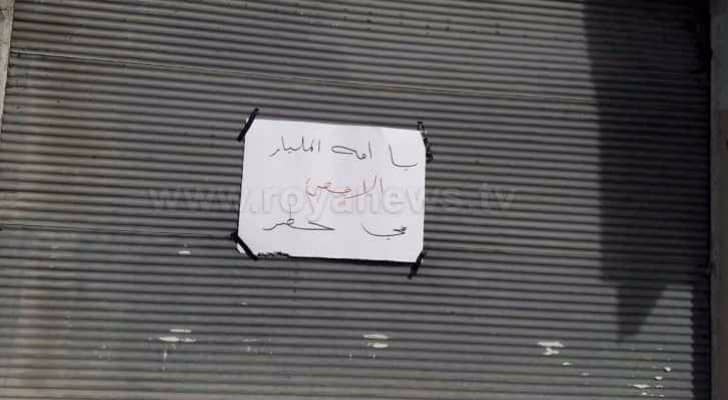 يا امه المليار
الاقصى
www.royanews.tv
في خطر